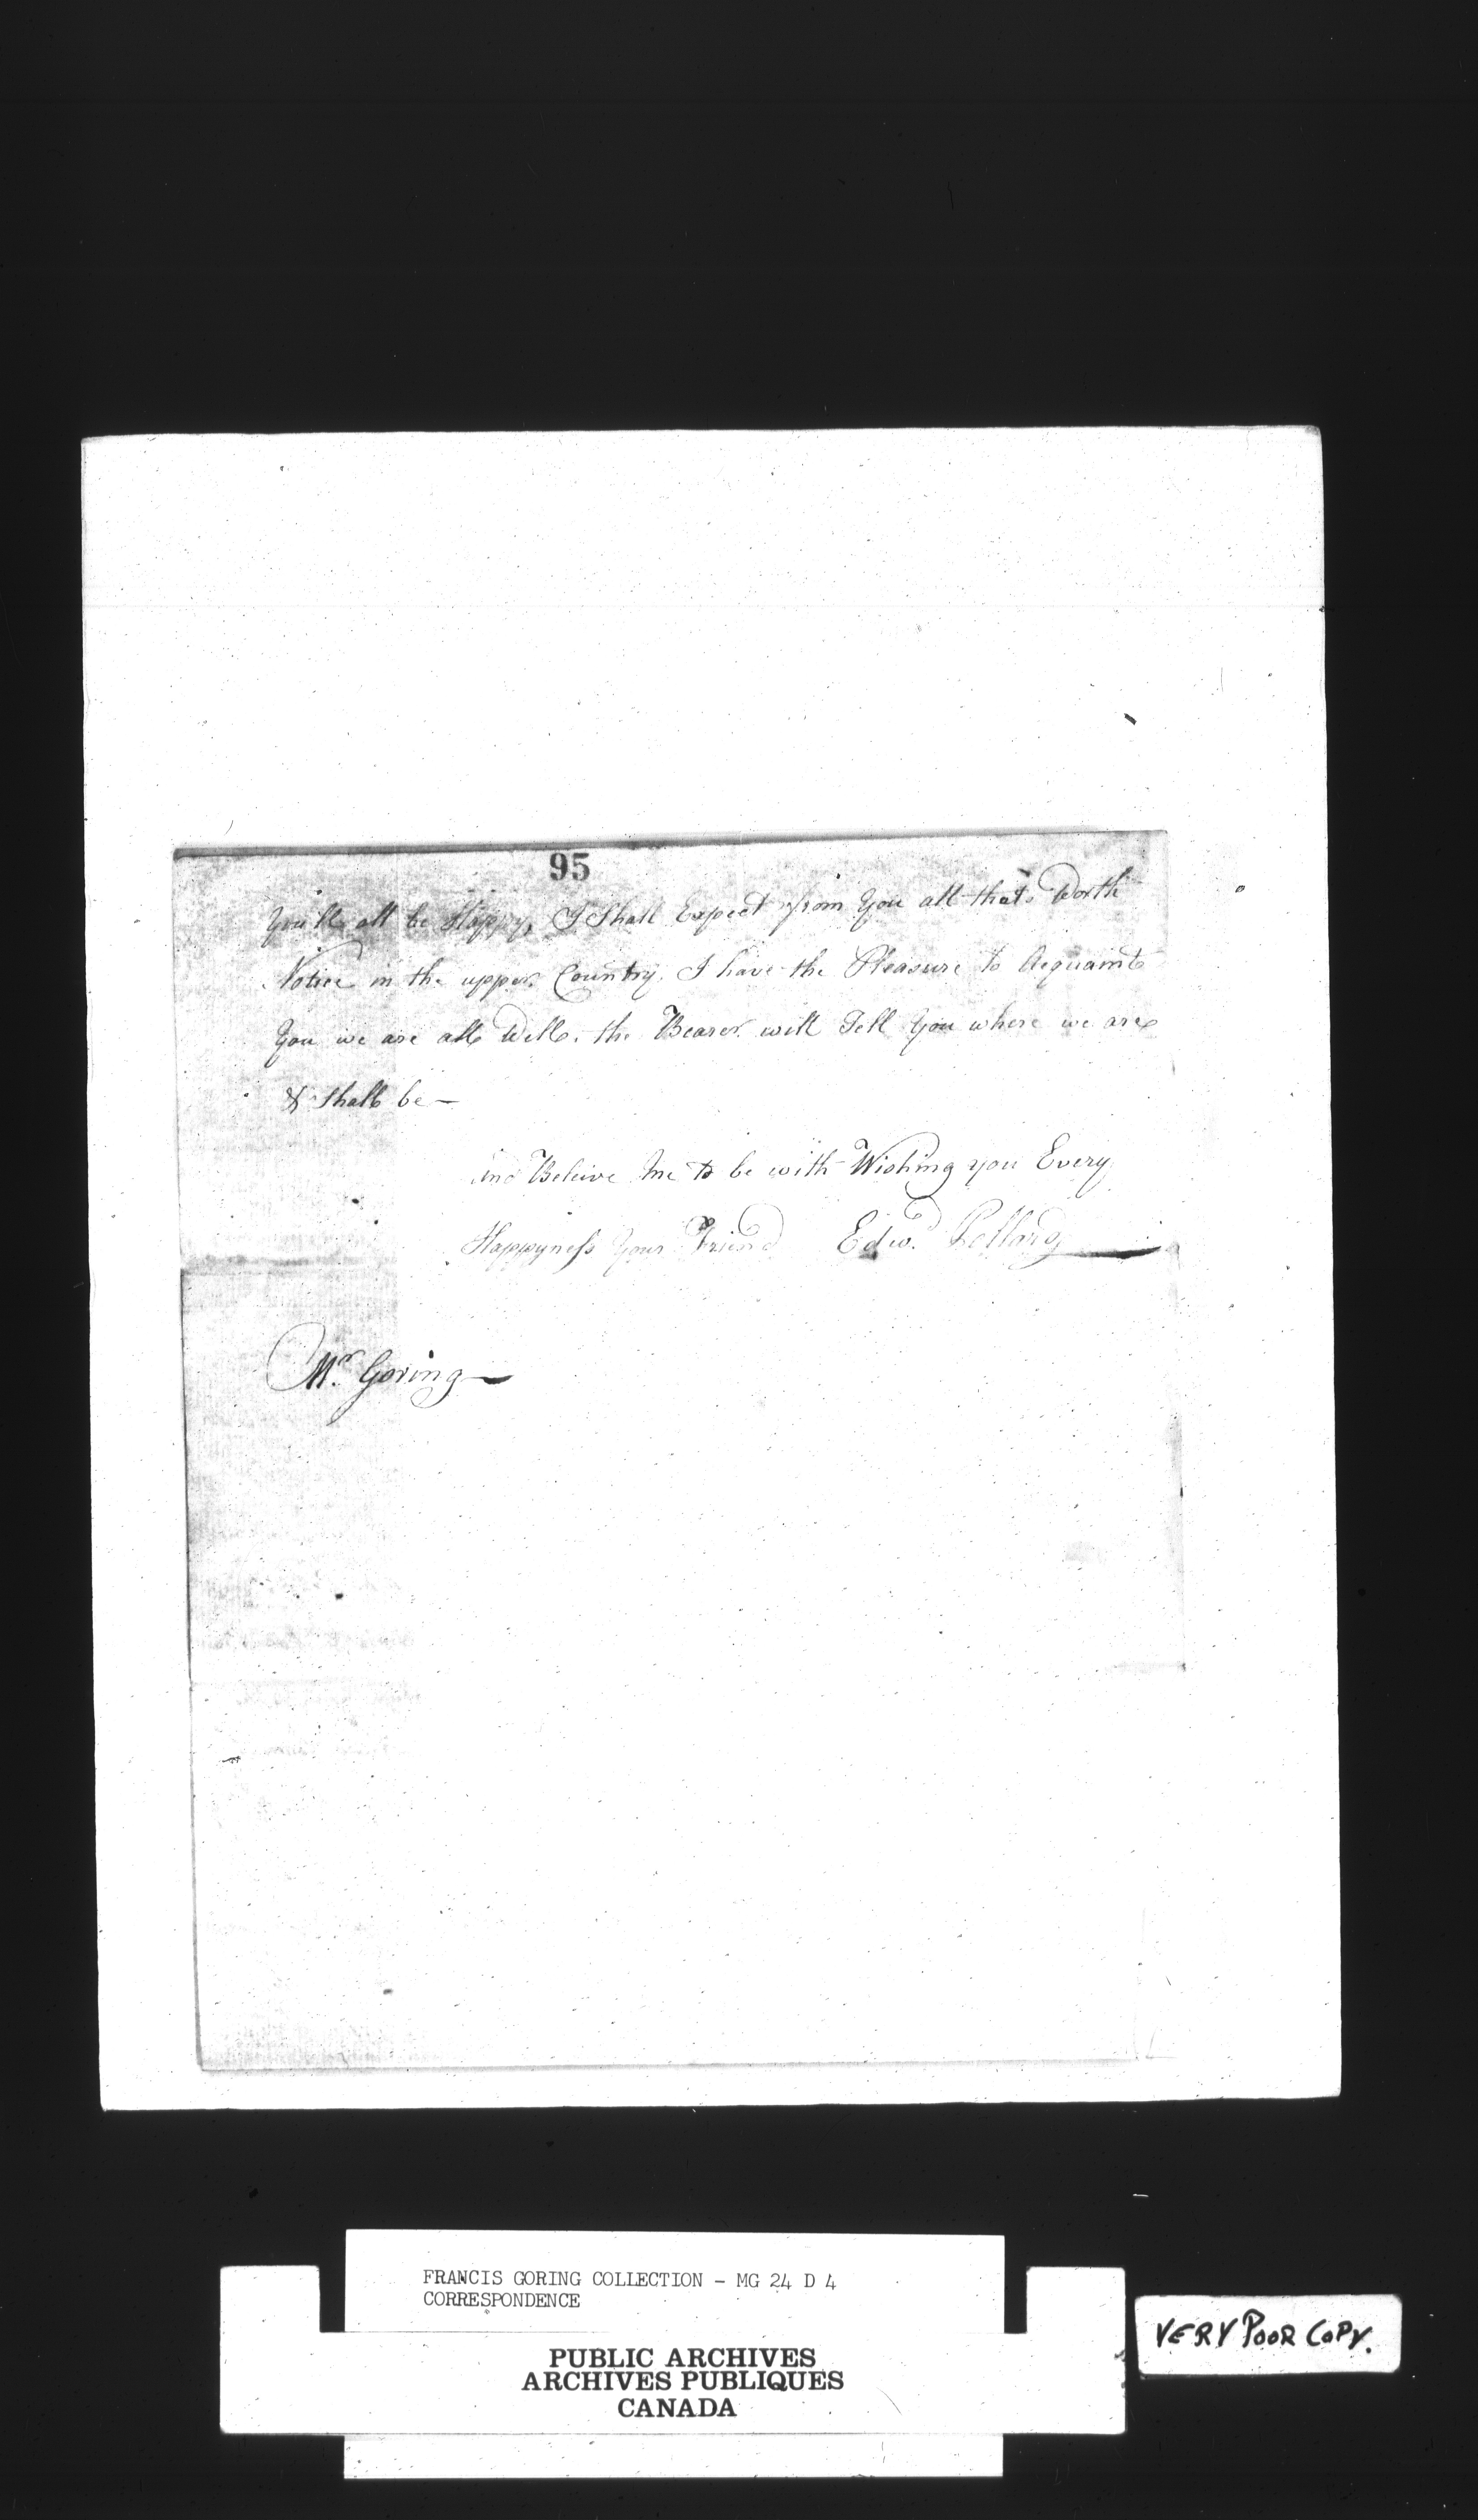 95
You'll all be Happy, I Shall Expect from You all thats Worth
Notice in the upper Country. I have the Pleasure to Acquaint
You we are all Well. the Bearer will Tell You where we are
& Shall be —
and Beleive Me to be with Wishing you Every
Happyness Your Friend Edwd. Pollard
Mr. Goring —
FRANCIS GORING COLLECTION - MG 24 D 4
CORRESPONDENCE
PUBLIC ARCHIVES
ARCHIVES PUBLIQUES
CANADA
VERY POOR COPY.